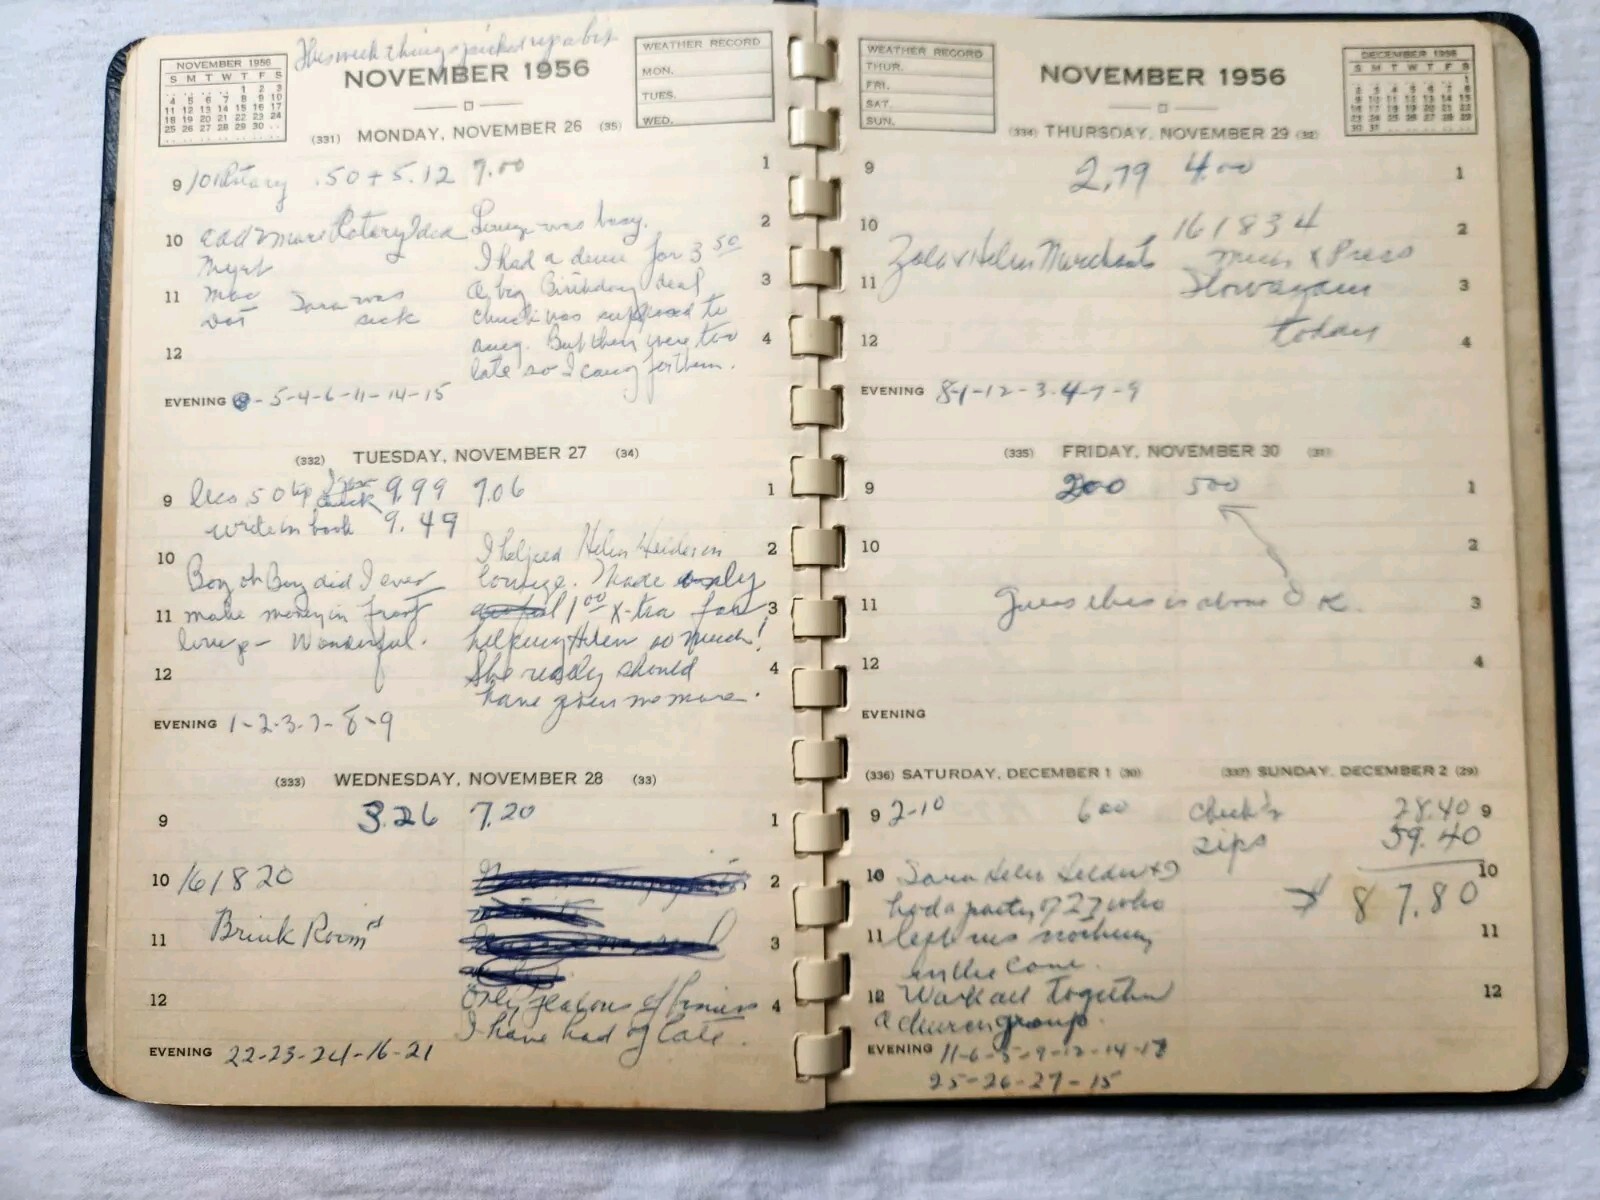 This week things picked up a bit
NOVEMBER 1956
S M T W T F S
1 2 3
4 5 6 7 8 9 10
11 12 13 14 15 16 17
18 19 20 21 22 23 24
25 26 27 28 29 30
NOVEMBER 1956
WEATHER RECORD
MON.
TUES.
WED.
(331) MONDAY, NOVEMBER 26 (35)
9 101 Rotary .50 + 5.12 7.00 1
10 add 2 more Rotary Idea was busy. 2
Myrt I had a deuce for 3 50
11 Mac Sara was a big Birthday deal 3
Dot sick was supposed to
12 But they were too 4
late so I for them.
EVENING - 5-4-6-11-14-15
(332) TUESDAY, NOVEMBER 27 (34)
9 50 tip 9.99 7.06 1
write in book 9.49
10 I helped Helen Helder in 2
Boy oh Boy did I ever lounge. Made only
11 make money in front 1 00 x-tra for 3
- Wonderful. helping Helen so much!
12 She really should 4
have given me more.
EVENING 1-2-3-7-8-9
(333) WEDNESDAY, NOVEMBER 28 (33)
9 3.26 7.20 1
10 161820 2
11 Brink Room 3
12 Only of business 4
I have had of late.
EVENING 22-23-24-16-21
WEATHER RECORD
THUR.
FRI.
SAT.
SUN.
NOVEMBER 1956
DECEMBER 1956
S M T W T F S
1
2 3 4 5 6 7 8
9 10 11 12 13 14 15
16 17 18 19 20 21 22
23 24 25 26 27 28 29
30 31
(334) THURSDAY, NOVEMBER 29 (32)
9 2.79 4.00 1
10 161834 2
Zola & Helen Merchants & Press
11 Slow again 3
12 today 4
EVENING 8-1-12-3-4-7-9
(335) FRIDAY, NOVEMBER 30 (31)
9 200 500 1
10 2
11 Guess this is above O K. 3
12 4
EVENING
(336) SATURDAY, DECEMBER 1 (30)
9 2-10 600
10 Sara Helen Helder & I
had a party of 27 who
11 left us nothing
in the
12 Work all together
a church group.
EVENING 11-6-5-9-12-14-17
25-26-27-15
(337) SUNDAY, DECEMBER 2 (29)
Check's 28.40 9
59.40
10
87.80
11
12